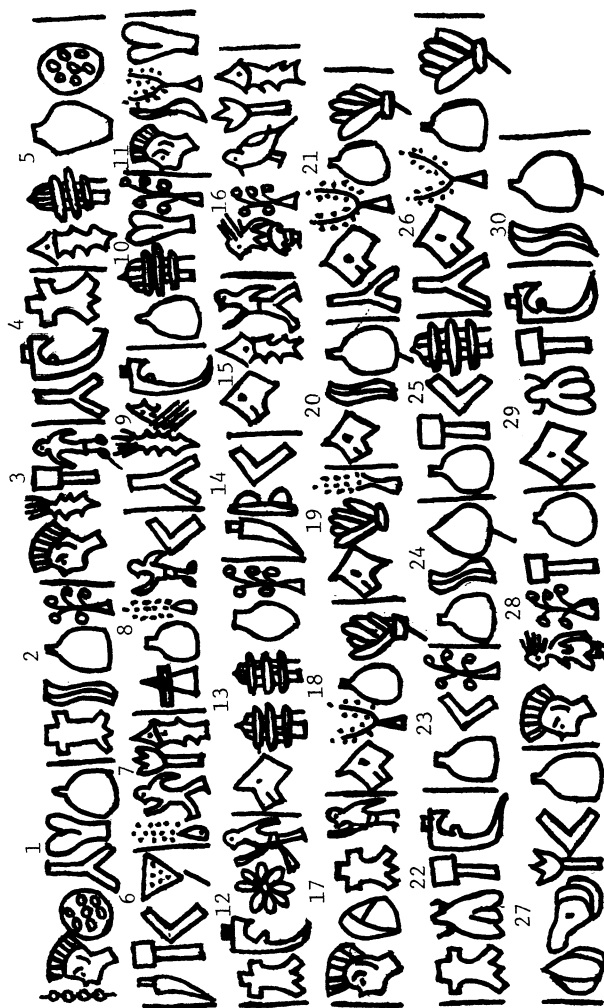 1 2 3 4 5
𐇑𐇛𐇥𐇷𐇖 | 𐇪𐇼𐇖𐇲 | 𐇑𐇴𐇦𐇔 | 𐇥𐇨𐇪 | 𐇰𐇧𐇣𐇛 |
6 7 8 9 10 11
𐇟𐇦𐇡𐇺 | 𐇜𐇐𐇶𐇰 | 𐇞𐇖𐇜𐇐𐇡 | 𐇥𐇴𐇹𐇨 | 𐇖𐇧𐇷𐇲 | 𐇑𐇩𐇳𐇷 |
12 13 14 15 16
𐇪𐇨𐇵𐇐 | 𐇬𐇧𐇧𐇣𐇲 | 𐇟𐇝𐇡 | 𐇬𐇰𐇐 | 𐇕𐇲𐇯𐇶𐇰 |
17 18 19 20 21
𐇑𐇘𐇪𐇐 | 𐇬𐇳𐇖𐇗 | 𐇬𐇗𐇜 | 𐇬𐇼𐇖 | 𐇥𐇬𐇳𐇖𐇗 |
22 23 24 25 26
𐇪𐇱𐇦𐇨 | 𐇖𐇡𐇲 | 𐇖𐇼𐇖 | 𐇖𐇦𐇡𐇧 | 𐇥𐇬𐇳𐇖𐇗 |
27 28 29 30
𐇘𐇭𐇶𐇡𐇖 | 𐇑𐇕𐇲𐇦𐇖 | 𐇬𐇱𐇦𐇨 | 𐇼𐇖 |